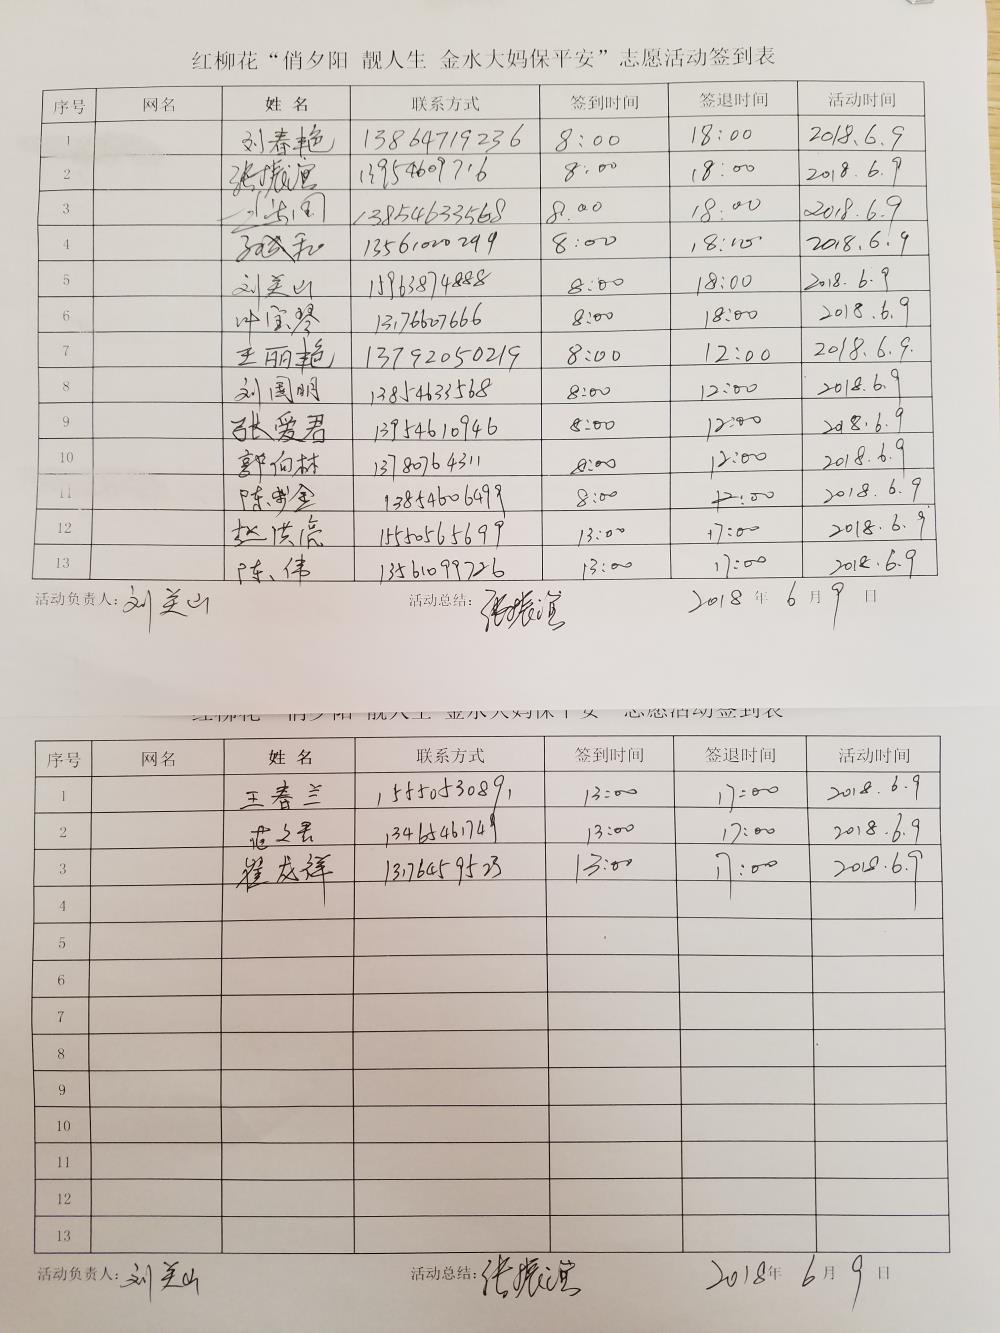 红柳花“俏夕阳 靓人生 金水大妈保平安”志愿活动签到表
序号 网名 姓名 联系方式 签到时间 签退时间 活动时间
1 刘春艳 13864719236 8:00 18:00 2018.6.9
2 张振谊 13954609716 8:00 18:00 2018.6.9
3 13854633568 8:00 18:00 2018.6.9
4 13561020299 8:00 18:00 2018.6.9
5 刘美山 15963874888 8:00 18:00 2018.6.9
6 叶宝琴 13176607666 8:00 18:00 2018.6.9
7 王丽艳 13792050219 8:00 12:00 2018.6.9.
8 刘国明 13854633568 8:00 12:00 2018.6.9
9 张爱君 13954610946 8:00 12:00 2018.6.9
10 郭向林 13780764311 8:00 12:00 2018.6.9
11 13854606499 8:00 12:00 2018.6.9
12 赵洪亮 15550565699 13:00 17:00 2018.6.9
13 陈伟 13561099726 13:00 17:00 2018.6.9
活动负责人:刘美山 活动总结:张振谊 2018年6月9日
红柳花“俏夕阳 靓人生 金水大妈保平安”志愿活动签到表
序号 网名 姓名 联系方式 签到时间 签退时间 活动时间
1 王春兰 15550530891 13:00 17:00 2018.6.9
2 范文君 13465461749 13:00 17:00 2018.6.9
3 崔龙祥 13176459523 13:00 17:00 2018.6.9
4
5
6
7
8
9
10
11
12
13
活动负责人:刘美山 活动总结:张振谊 2018年6月9日